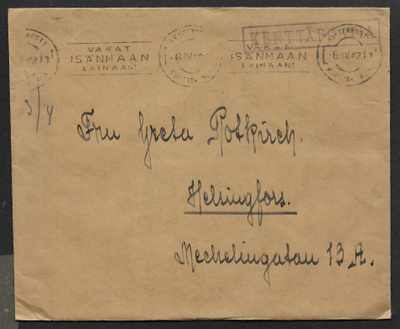 KENTTÄP
VARAT
ISÄNMAAN
LAINAAN!
-6.IV.42
ISÄNMAAN
LAINAAN!
-6.IV.42
3/4
Fru Greta Rotkirch.
Helsingfors.
Mechelingatan 13 A.